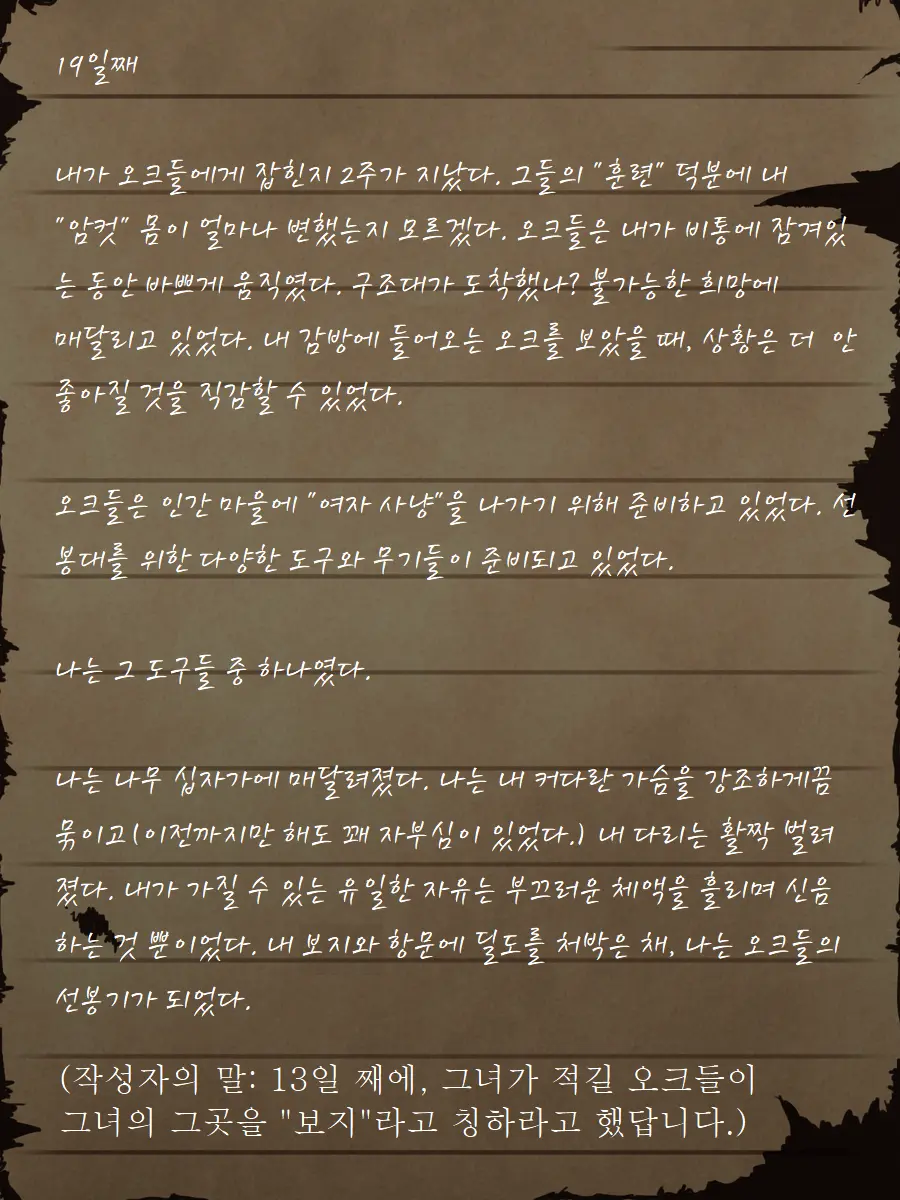 19일째
내가 오크들에게 잡힌지 2주가 지났다. 그들의 "훈련" 덕분에 내
"암컷" 몸이 얼마나 변했는지 모르겠다. 오크들은 내가 비통에 잠겨있
는 동안 바쁘게 움직였다. 구조대가 도착했나? 불가능한 희망에
매달리고 있었다. 내 감방에 들어오는 오크를 보았을 때, 상황은 더 안
좋아질 것을 직감할 수 있었다.
오크들은 인간 마을에 "여자 사냥"을 나가기 위해 준비하고 있었다. 선
봉대를 위한 다양한 도구와 무기들이 준비되고 있었다.
나는 그 도구들 중 하나였다.
나는 나무 십자가에 매달려졌다. 나는 내 커다란 가슴을 강조하게끔
묶이고(이전까지만 해도 꽤 자부심이 있었다.) 내 다리는 활짝 벌려
졌다. 내가 가질 수 있는 유일한 자유는 부끄러운 체액을 흘리며 신음
하는 것 뿐이었다. 내 보지와 항문에 딜도를 처박은 채, 나는 오크들의
선봉기가 되었다.
(작성자의 말: 13일 째에, 그녀가 적길 오크들이
그녀의 그곳을 "보지"라고 칭하라고 했답니다.)